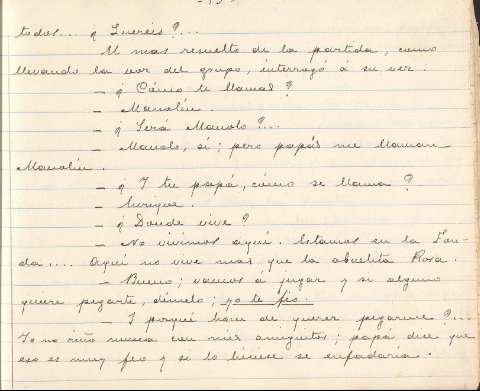 - 13 -
todos... ¿ Quereis ?...
El mas resuelto de la partida, como
llevando la voz del grupo, interrogó á su vez:
- ¿ Cómo te llamas ?
- Manolin.
- ¿ Será Manolo ?...
- Manolo, sí; pero papás me llaman
Manolin.
- ¿ I tu papá, cómo se llama ?
- Enrique.
- ¿ Donde vive ?
- No vivimos aquí. Estamos en la Fon-
da.... Aquí no vive mas que la abuelita Rosa.
- Bueno; vamos á jugar y si alguno
quiere pegarte, dímelo; yo te fio.
- I porqué han de querer pegarme ?...
Yo no riño nunca con mis amiguitos; papá dice que
eso es muy feo y si lo hiciese se enfadaría.